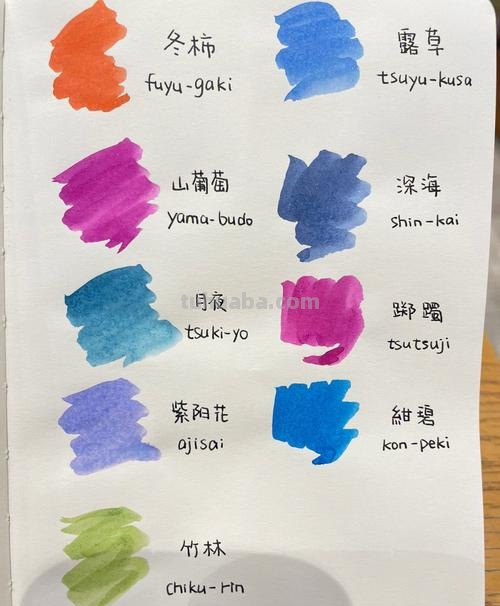 冬柿
fuyu-gaki
露草
tsuyu-kusa
山葡萄
yama-budo
深海
shin-kai
月夜
tsuki-yo
踯躅
tsutsuji
紫阳花
ajisai
紺碧
kon-peki
竹林
chiku-rin